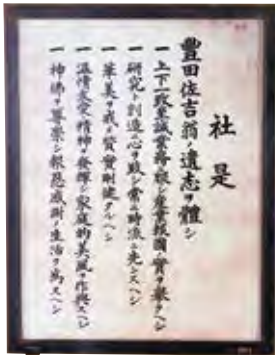 社是
豐田佐吉翁ノ遺志ヲ體シ
一 上下一致至誠業務ニ服シ産業報國ノ實ヲ擧クヘシ
一 研究ト創造ニ心ヲ致シ常ニ時流ニ先ンスヘシ
一 華美ヲ戒メ質實剛健タルヘシ
一 温情友愛ノ精神ヲ發揮シ家庭的美風ヲ作興スヘシ
一 神佛ヲ尊崇シ報恩感謝ノ生活ヲ為スヘシ